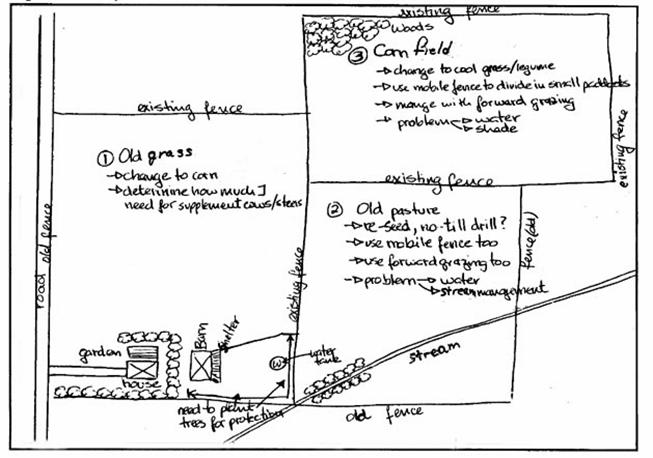 existing fence
woods
③ Corn field
→ change to cool grass/legume
→ use mobile fence to divide in small paddocks
→ mange with forward grazing
→ problem → water
→ shade
existing fence
existing fence
① Old grass
→ change to corn
→ determine how much I
need for supplement cows/steers
existing fence
② Old pasture
→ re-seed, no-till drill?
→ use mobile fence too
→ use forward grazing too
→ problem → water
→ stream management
fence (old)
existing fence
road old fence
garden
house
Barn
shelter
W
water
tank
stream
need to plant
trees for protection
old fence